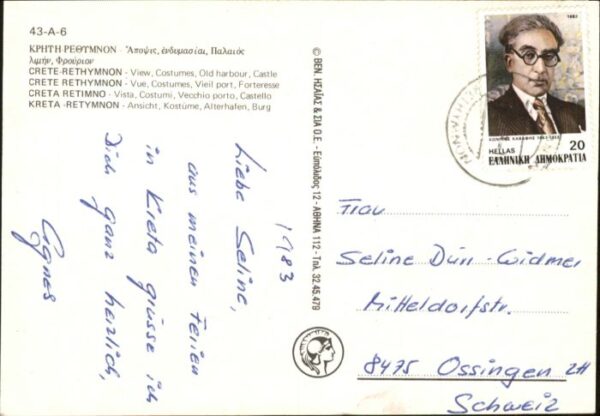 43-A-6
ΚΡΗΤΗ ΡΕΘΥΜΝΟΝ - Ἄποψις, ἐνδυμασίαι, Παλαιός
λιμήν, Φρούριον
CRETE-RETHYMNON - View, Costumes, Old harbour, Castle
CRETE RETHYMNON - Vue, Costumes, Vieil port, Forteresse
CRETA RETIMNO - Vista, Costumi, Vecchio porto, Castello
KRETA -RETYMNON - Ansicht, Kostüme, Alterhafen, Burg
1983
Liebe Seline,
aus meinen Ferien
in Kreta grüsse ich
Dich ganz herzlich,
Agnes
© ΒΕΝ. ΗΣΑΪΑΣ & ΣΙΑ Ο.Ε. - Εὐπόλιδος 12 - ΑΘΗΝΑ 112 - Τηλ. 32.45.479
1983
ΚΩΝ/ΝΟΣ ΚΑΒΑΦΗΣ 1863-1933
HELLAS 20
ΕΛΛΗΝΙΚΗ ΔΗΜΟΚΡΑΤΙΑ
Frau
Seline Dün-Widmer
Mitteldorfstr.
8475 Ossingen ZH
Schweiz